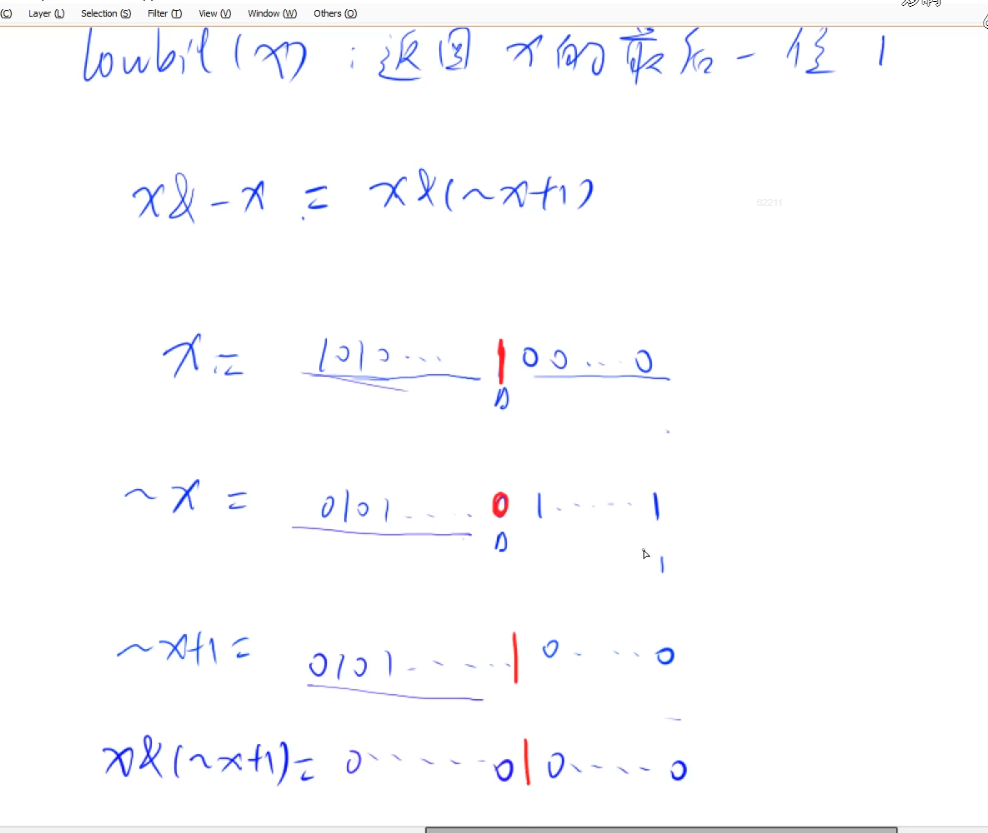 (C) Layer (L) Selection (S) Filter (T) View (V) Window (W) Others (O)
lowbit(x) : 返回 x 的最后一位 1
x&-x = x&(~x+1)
62211
x = 1010... 100...0
~x = 0101.... 01.....1
1
~x+1 = 0101......10....0
x&(~x+1) = 0......010.....0